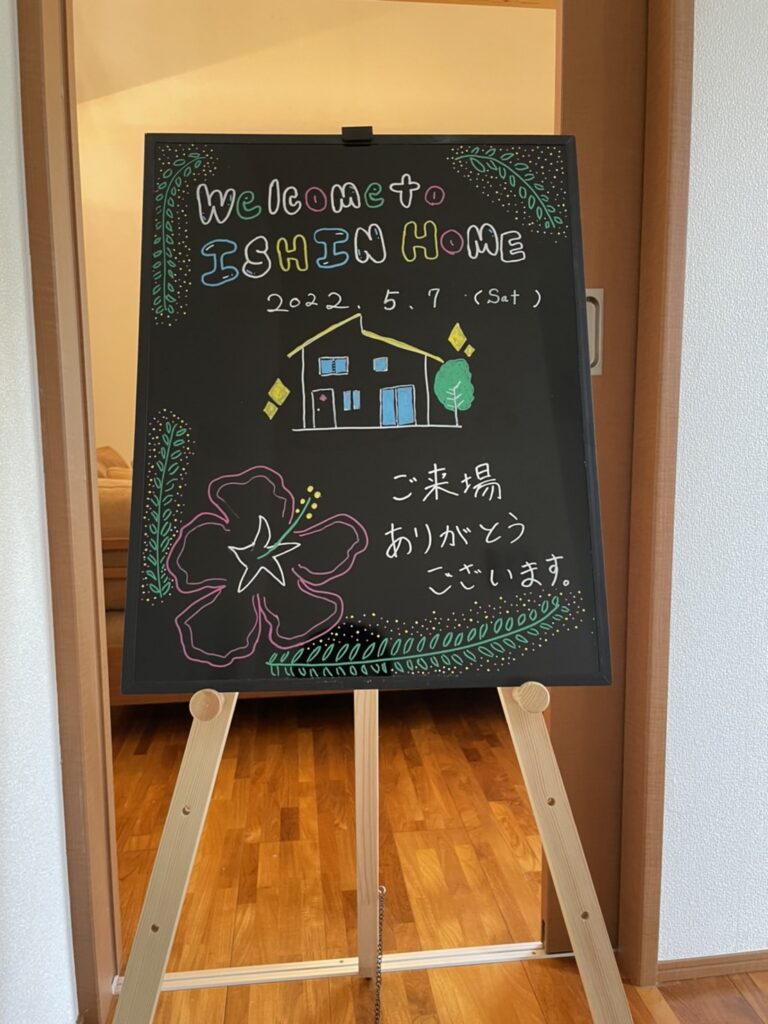 Welcome to
ISHIN HOME
2022.5.7 (Sat)
ご来場
ありがとう
ございます。